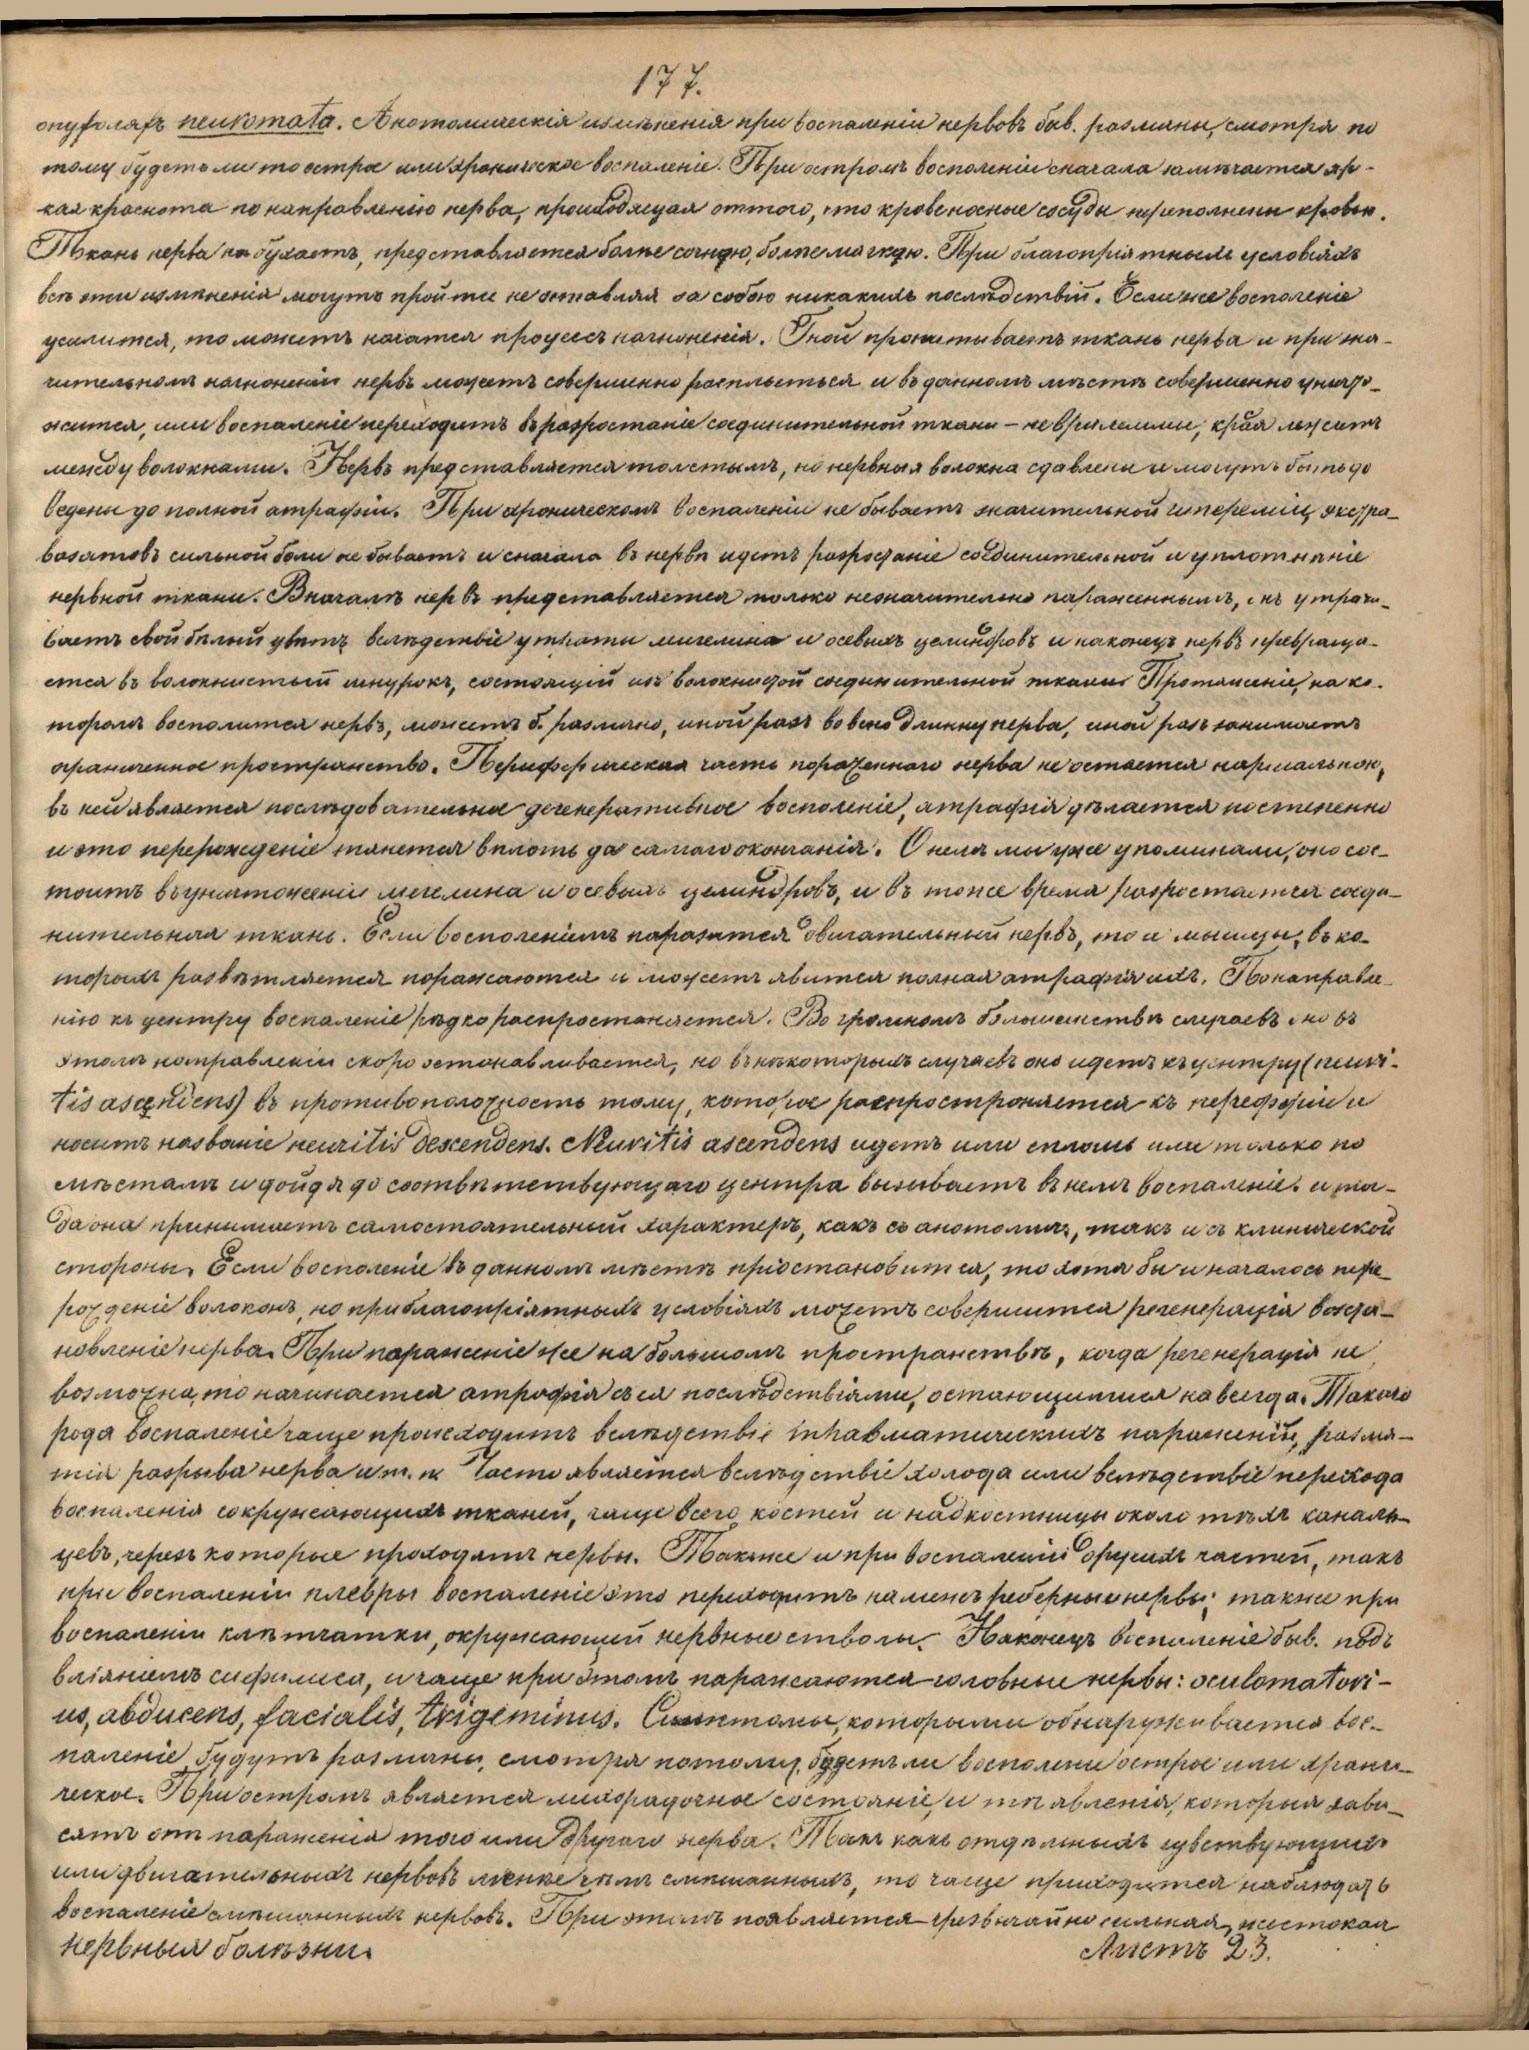 177.
опухоляхъ neuromata. Анотомическія измѣненія при воспаленіи нервовъ быв. различны, смотря по
тому будетъ ли то острое или хроническое воспаленіе. При остромъ воспаленіи сначала замѣчается яр-
кая краснота по направленію нерва, происходящая оттого, что кровеносные сосуды переполнены кровью.
Ткань нерва набухаетъ, представляется болѣе сочною, болѣе мягкою. При благопріятныхъ условіяхъ
всѣ эти измѣненія могутъ пройти не оставляя за собою никакихъ послѣдствій. Если же воспаленіе
усилится, то можетъ начатся процессъ нагноенія. Гной пропитываетъ ткань нерва и при зна-
чительномъ нагноеніи нервъ можетъ совершенно расплыться и въ данномъ мѣстѣ совершенно уничто-
жится, или воспаленіе переходитъ въ разростаніе соединительной ткани – невриллеммы, края лежитъ
между волокнами. Нервъ представляется толстымъ, но нервныя волокна сдавлены и могутъ быть до
ведены до полной атрафіи. При хроническомъ воспаленіи не бываетъ значительной гипереміи, экстра-
вазатовъ сильной боли не бываетъ и сначала въ нервѣ идетъ разростаніе соединительной и уплотненіе
нервной ткани. Вначалѣ нервъ представляется только незначительно параженнымъ, онъ утрачи-
ваетъ свой бѣлый цвѣтъ вслѣдствіе утраты миелина и осевыхъ целиндровъ и наконецъ нервъ превраща-
ется въ волокнистый шнурокъ, состоящій изъ волокнистой соединительной ткани. Протяженіе, на ко-
торомъ воспалится нервъ, можетъ б. различно, иной разъ во всю длинну нерва, иной разъ занимаетъ
ограниченное пространство. Периферическая часть пораженнаго нерва не остается нармальною,
въ ней является послѣдовательное дегенеративное воспаленіе, атрафія дѣлается постепенно
и это перерожденіе тянется вплоть до самаго окончанія. О немъ мы уже упоминали, оно сос-
тоитъ въ уничтоженіи миелина и осевыхъ целиндровъ, и въ тоже время разростается соеди-
нительная ткань. Если воспаленіемъ паразится двигательный нервъ, то и мышцы, въ ко-
торыхъ развѣтляется поражаются и можетъ явится полная атрафія ихъ. По направле-
нію къ центру воспаленіе рѣдко распространяется. Во громномъ большинствѣ случаевъ оно въ
этомъ направленіи скоро останавливается, но въ нѣкоторыхъ случаевъ оно идетъ къ центру (neuri-
tis ascendens) въ противоположность тому, которое распространяется къ периферіи и
носитъ названіе neuritis descendens. Neuritis ascendens идетъ или сплошь или только по
мѣстамъ и дойдя до соотвѣтствующаго центра вызываетъ въ немъ воспаленіе и тог-
да она принимаетъ самостоятельный характеръ, какъ съ анотомич., такъ и съ клинической
стороны. Если воспаленіе въ данномъ мѣстѣ пріостановится, то хотя бы и началось пере-
рожденіе волоконъ, но при благопріятныхъ условіяхъ можетъ совершится регенерація возста-
новленіе нерва. При параженіе же на большомъ пространствѣ, когда регенерація не
возможна, то начинается атрафія съ ея послѣдствіями, остающимися навсегда. Такого
рода воспаленіе чаще происходитъ вслѣдствіе травматическихъ параженій, размя-
тія разрыва нерва и т. п. Часто является вслѣдствіе холода или вслѣдствіе перехода
воспаленія сокружающихъ тканей, чаще всего костей и надкостницы около тѣхъ каналь-
цевъ, черезъ которые проходятъ нервы. Также и при воспаленіи другихъ частей, такъ
при воспаленіи плевры воспаленіе это переходитъ на межъреберные нервы; также при
воспаленіи клѣтчатки, окружающей нервные стволы. Наконецъ воспаленіе быв. подъ
вліяніемъ сифилиса, и чаще при этомъ паражаются головные нервы: oculomatori-
us, abducens, facialis, trigeminus. Симптомы, которыми обнаруживается вос-
паленіе будутъ различны, смотря потому, будетъ ли воспаленіе острое или хрони-
ческое. При остромъ является лихорадочное состояніе, и тѣ явленія, которыя зави-
сятъ отъ параженія того или другого нерва. Такъ какъ отдѣльныхъ чувствующихъ
или двигательныхъ нервовъ менѣе чѣмъ смѣшанныхъ, то чаще приходится наблюдать
воспаленіе смѣшанныхъ нервовъ. При этомъ появляется чрезвычайно сильная, жестокая
Нервныя болѣзни. Листъ 23.